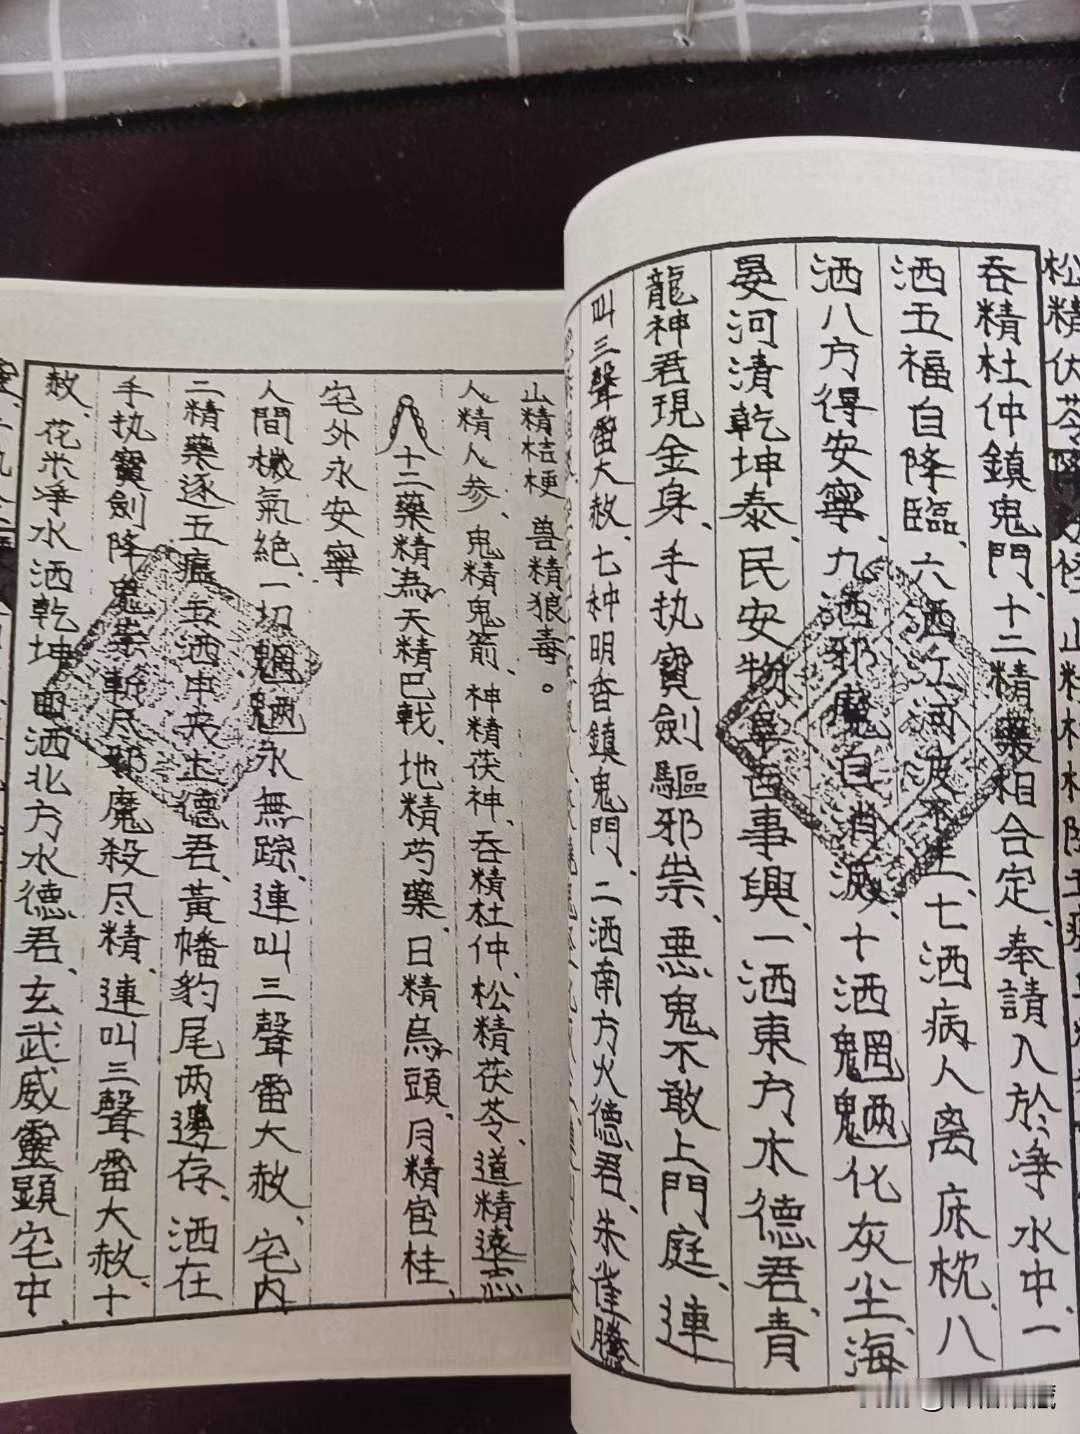 吞精杜仲鎮鬼門、十二精藥相合定、奉請入於净水中、一
洒五福自降臨、六洒江河波不生、七洒病人离床枕、八
洒八方得安寧、九洒邪魔自消滅、十洒魍魎化灰尘、海
晏河清乾坤泰、民安物阜百事興、一洒東方木德君、青
龍神君現金身、手执寶劍驅邪祟、悪鬼不敢上門庭、連
叫三聲雷大赦、七种明香鎮鬼門、二洒南方火德君、朱雀騰
山精桔梗 兽精狼毒。
人精人参、鬼精鬼箭、神精茯神、吞精杜仲、松精茯苓、道精遠志
十二藥精為天精巴戟、地精芍藥、日精烏頭、月精官桂、
宅外永安寧
人間機氣絶、一切魍魎永無踪、連叫三聲雷大赦、宅内
二精藥逐五瘟、五洒中央土德君、黃幡豹尾两邊存、洒在
手执寶劍降鬼祟、斬尽邪魔殺尽精、連叫三聲雷大赦、十
赦、花米净水洒乾坤、四洒北方水德君、玄武威靈顯宅中、